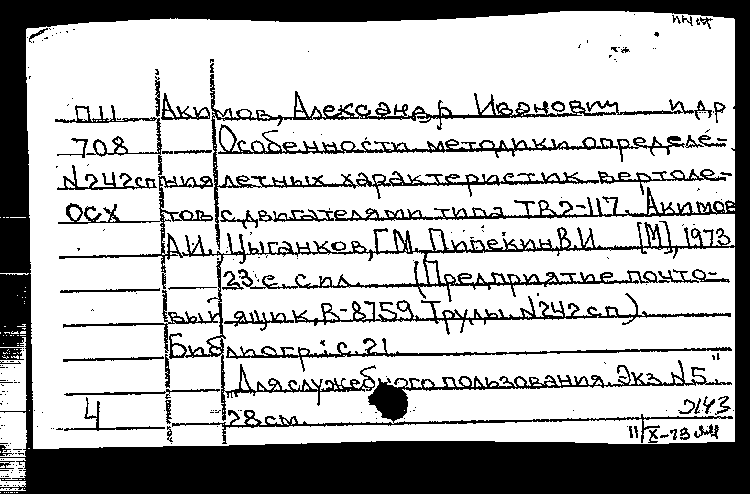 П11 Акимов, Александр Иванович и др
708 Особенности методики определе-
N242сп ния летных характеристик вертоле-
ОСХ тов с двигателями типа ТВ2-117. Акимов
А.И., Цыганков, Г.М. Пипекин, В.И [М], 1973
23 с. с ил. (Предприятие почто-
вый ящик, В-8759. Труды. N242сп).
Библиогр.: с. 21.
"Для служебного пользования. Экз. N5."
4 28 см. 2143
11/X-73